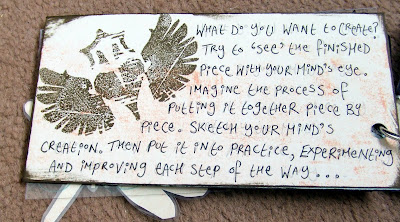 WHAT DO YOU WANT TO CREATE?
TRY TO 'SEE' THE FINISHED
PIECE WITH YOUR MIND'S EYE.
IMAGINE THE PROCESS OF
PUTTING IT TOGETHER PIECE BY
PIECE. SKETCH YOUR MIND'S
CREATION. THEN PUT IT INTO PRACTICE, EXPERIMENTING
AND IMPROVING EACH STEP OF THE WAY...